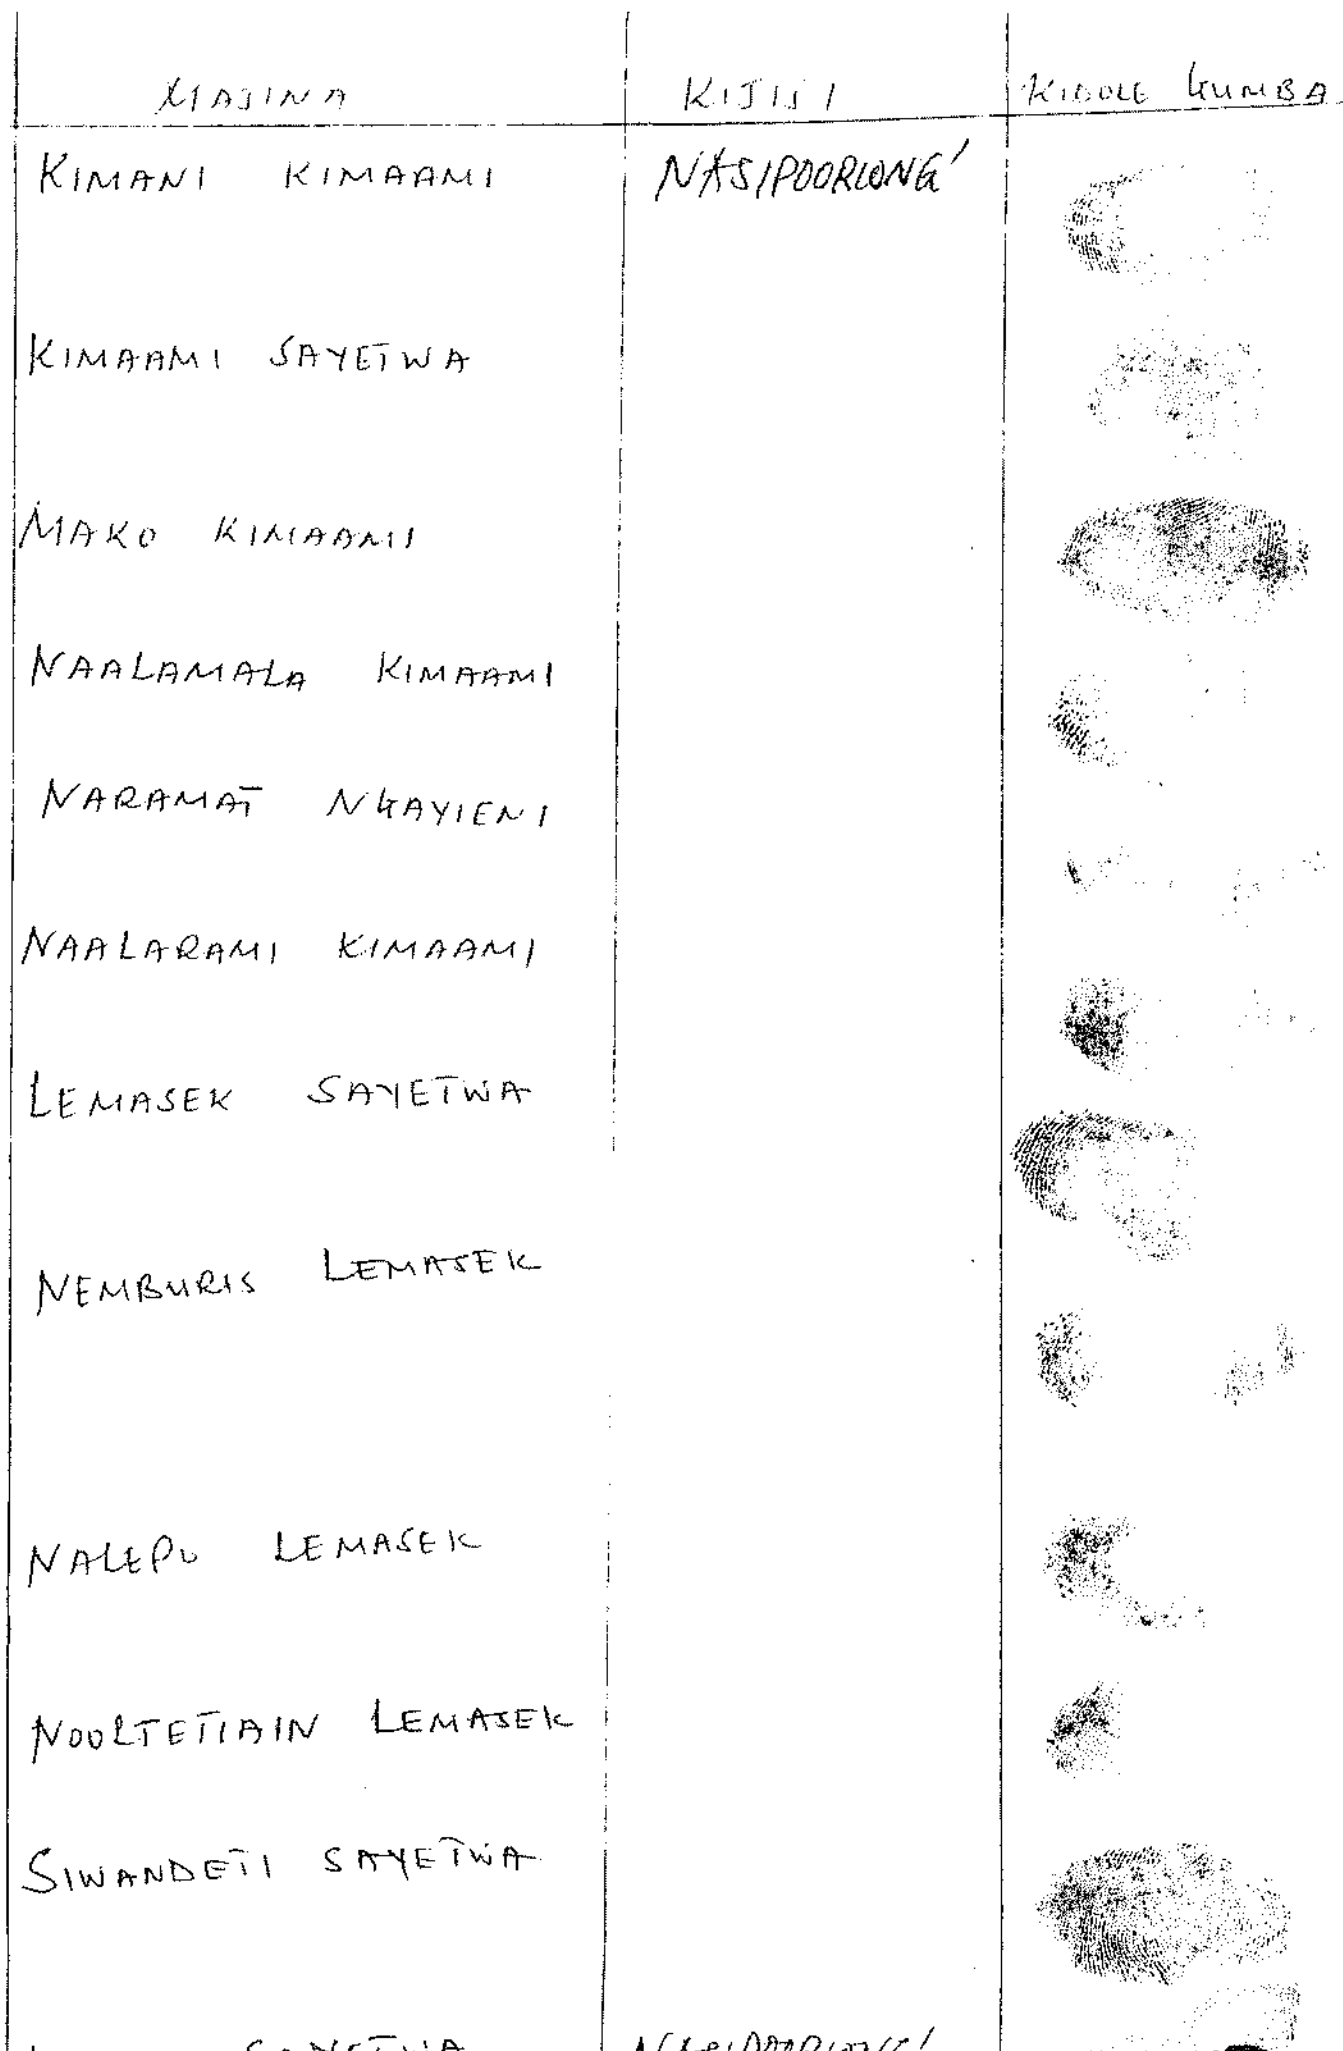 MAJINA KIJIJI KIDOLE GUMBA
KIMANI KIMAAMI NASIPOORIONG'
KIMAAMI SAYETWA
MAKO KIMAAMI
NAALAMALA KIMAAMI
NARAMAT NGAYIENI
NAALARAMI KIMAAMI
LEMASEK SAYETWA
NEMBURIS LEMASEK
NALEPO LEMASEK
NOOLTETIAIN LEMASEK
SIWANDETI SAYETWA
SAYETWA NASIPOORIONG'